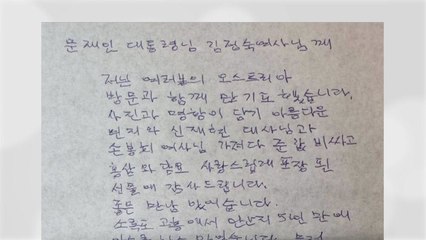 문재인 대통령님 김정숙여사님 께
저는 여러분의 오스트리아
방문과 함께 단기표 했습니다.
사진과 명함이 담기 아름다운
편지와 신재현 대사님과
여사님 가져다 준 비싸고
홍삼 와 담요 사랑스럽게 포장 된
선물에 감사드립니다.
좋은 만남 있어습니다.
소록도 고흥에서